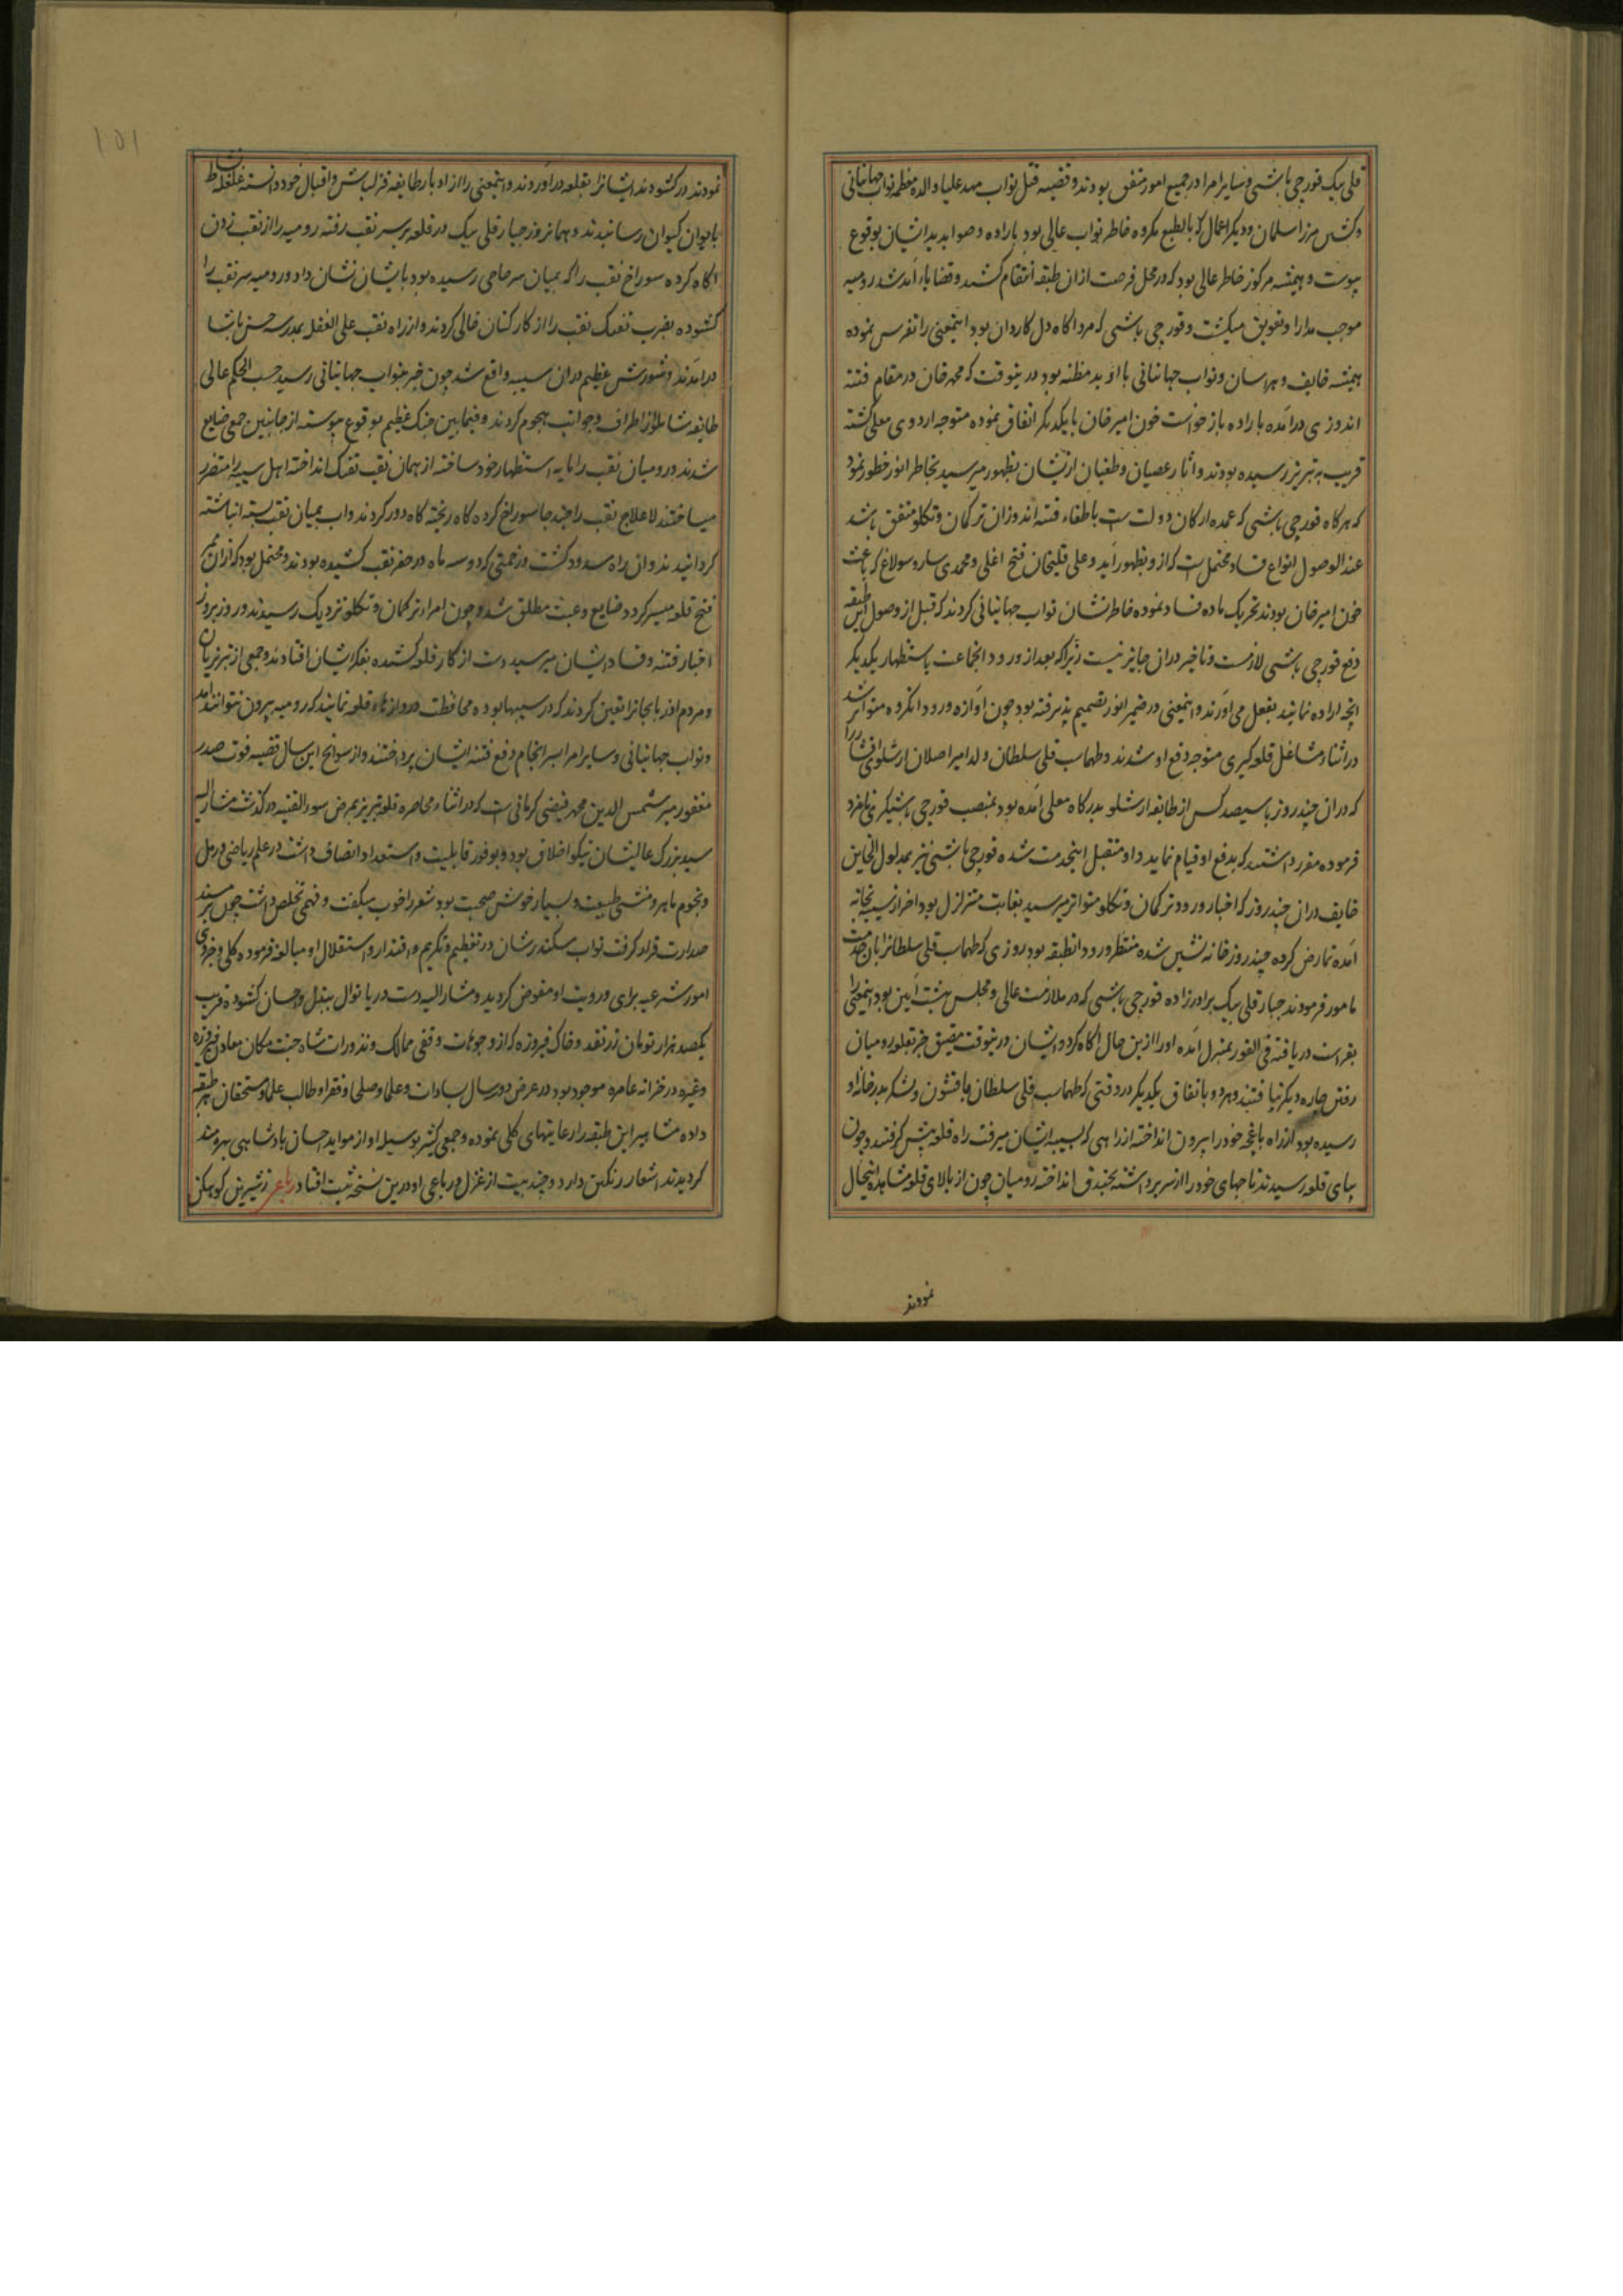 قلی بیک قورچی باشی و سایر امرا در جمیع امور متفق بودند و قضیه قتل نواب مهد علیا والده معظمه نواب جهانبانی
و کشتن میرزا سلمان و دیگر اعمال که بالطبع مکروه خاطر نواب عالی بود باراده و صوابدید ایشان بوقوع
پیوست و همیشه مرکوز خاطر عالی بود که در محل فرصت ازان طبقه انتقام کشند و قضایاء آمد شد رومیه
موجب مدارا و تعویق میکشت و قورچی باشی که مرد اکاه دل کاردان بود اینمعنی را تفرس نموده
همیشه خایف و هراسان و نواب جهانبانی با او بد مظنه بود درینوقت که محمد خان در مقام فتنه
اندوزی درآمده باراده بازخواست خون امیر خان با یکدیکر اتفاق نموده متوجه اردوی معلی کشته
قریب به تبریز رسیده بودند و آثار عصیان و طغیان ازیشان بظهور میرسید بخاطر انور خطور نمود
که هرکاه قورچی باشی که عمده ارکان دولت است باطفاء فتنه اندوزان ترکمان و تکلو متفق باشد
عند الوصول انواع فساد محتمل است که ازو بظهور آید و علی قلیخان فتح اغلی و محمدی ساروسولاغ که باعث
خون امیر خان بودند تحریک ماده فساد نموده خاطر نشان نواب جهانبانی کردند که قبل از وصول این طبقه
دفع قورچی باشی لازمست و تاخیر دران جایز نیست زیرا که بعد از ورود انجماعت باستظهار یکدیکر
انچه اراده نمایند بفعل می آورند و اینمعنی در ضمیر انور تصمیم پذیرفته بود چون آوازه ورود انکروه متواتر شد
در اثناء مشاغل قلعه کیری متوجه دفع او شدند و طهماسب قلی سلطان ولد امیر اصلان ارشلوی افشار را
که دران چند روز با سیصد کس از طایفه ارشلو بدرکاه معلی آمده بود بمنصب قورچی باشیکری نامزد
فرموده مقرر داشتند که بدفع او قیام نماید و او متقبل اینخدمت شده قورچی باشی نیز بمدلول الخاین
خایف دران چند روز که اخبار ورود ترکمان و تکلو متواتر میرسید بغایت متزلزل بود آخر از سیبه بخانه
آمده تمارض کرده چند روز خانه نشین شده منتظر ورود انطبقه بود روزی که طهماسب قلی سلطانرا بان خدمت
مامور فرمودند جبار قلی بیک برادرزاده قورچی باشی که در ملازمت عالی و مجلس بهشت آیین بود اینمعنی را
بفراست دریافته فی الفور بمنزل آمده او را ازین حال اکاه کرد و ایشان درینوقت مضیق جز بقلعه رومیان
رفتن چاره دیکر نیافتند و هر دو باتفاق یکدیکر در وقتی که طهماسب قلی سلطان با قشون و لشکر بدر خانه او
رسیده بود از راه باغچه خود را بیرون انداخته از راهی که بسیبه ایشان میرفت راه قلعه پیش کرفتند و چون
بپای قلعه رسیدند تاجهای خود را از سر برداشته بخندق انداخته رومیان چون از بالای قلعه مشاهده اینحال
نمودند
۱۵۱
نمودند در کشودند ایشانرا بقلعه درآوردند و اینمعنی را از ادبار طایفه قزلباش و اقبال خود دانسته غلغله نشاط
بایوان کیوان رسانیدند و همانروز جبار قلی بیک در قلعه بر سر نقب رفته رومیه را از نقب زدن
اکاه کرده سوراخ نقب را که بمیان سر حاجی رسیده بود بایشان نشان داد و رومیه سر نقب را
کشوده بضرب تفنک نقب را از کارکنان خالی کردند و از راه نقب علی الغفله بمدرسه حسن پاشا
درآمدند و شورش عظیم دران سیبه واقع شد چون خبر بنواب جهانبانی رسید حسب الحکم عالی
طایفه شاملو از اطراف و جوانب هجوم کردند و فیمابین جنک عظیم بوقوع پیوسته از جانبین جمعی ضایع
شدند و رومیان نقب را مایه استظهار خود ساخته از همان نقب تفنک انداخته اهل سیبه را متضرر
میساختند لاعلاج نقب را چند جا سوراخ کرده کاه ریخته کاه دود کردند و آب بمیان نقب بسته انباشته
کردانیدند و آن راه مسدود کشت و زحمتی که دو سه ماه در حفر نقب کشیده بودند و محتمل بود که ازان ممر
فتح قلعه میسر کردد ضایع و عبث مطلق شد و چون امراء ترکمان و تکلو نزدیک رسیدند و روز بروز
اخبار فتنه و فساد ایشان میرسید دست از کار قلعه کشیده بفکر ایشان افتادند و جمعی از تبریزیان
و مردم آذربایجانرا تعین کردند که در سیبها بوده محافظت دروازهاء قلعه نمایند که رومیه بیرون نتوانند آمد
و نواب جهانبانی و سایر امرا بسرانجام دفع فتنه ایشان پرداختند و از سوانح این سال قضیه فوت صدر
مغفور میر شمس الدین محمد فیضی کرمانی است که در اثناء محاصره قلعه تبریز بمرض سوء القنیه درکذشت مشارالیه
سید بزرک عالیشان نیکو اخلاق بود و بوفور قابلیت و استعداد اتصاف داشت در علم ریاضی و رمل
و نجوم ماهر و منشی طبیعت و بسیار خوش صحبت بود شعر را خوب میکفت و فهمی تخلص داشت چون بر مسند
صدارت قرار کرفت نواب سکندر شان در تعظیم و تکریم و اقتدار و استقلال او مبالغه فرموده کلی و جزوی
امور شرعیه برای و رویت او مفوض کردید و مشارالیه دست دریا نوال ببذل و احسان کشوده قریب
یکصد هزار تومان زر نقد و خاک فیروزه که از وجوهات وقفی ممالک و نذورات شاه جنت مکان معادن فیروزه
و غیره در خزانه عامره موجود بود در عرض دو سال بسادات و علما و صلحا و فقرا و طالب علم و مستحقان هر طبقه
داده مشاهیر این طبقه را رعایتهای کلی نموده و جمعی کثیر بوسیله او از مواید احسان پادشاهی بهره مند
کردیدند اشعار رنکین دارد و چند بیت از غزل و رباعی او درین نسخه ثبت افتاد رباعی ز شیرین کوهکن